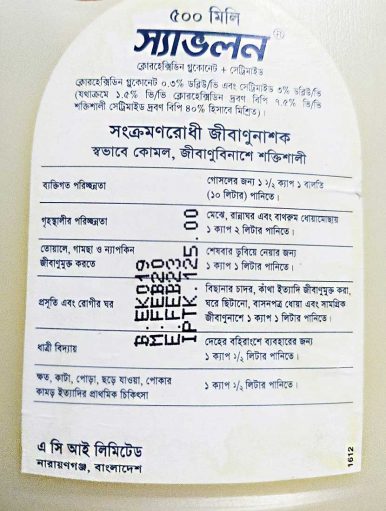 ৫০০ মিলি
স্যাভলন®
ক্লোরহেক্সিডিন গ্লুকোনেট + সেট্রিমাইড
ক্লোরহেক্সিডিন গ্লুকোনেট ০.৩% ডব্লিউ/ভি এবং সেট্রিমাইড ৩% ডব্লিউ/ভি
(যথাক্রমে ১.৫% ভি/ভি ক্লোরহেক্সিডিন দ্রবণ বিপি ৭.৫% ভি/ভি
শক্তিশালী সেট্রিমাইড দ্রবণ বিপি ৪০% হিসাবে মিশ্রিত)।
সংক্রমণরোধী জীবাণুনাশক
স্বভাবে কোমল, জীবাণুবিনাশে শক্তিশালী
ব্যক্তিগত পরিচ্ছন্নতা
গোসলের জন্য ১ ১/২ ক্যাপ ১ বালতি
(১০ লিটার) পানিতে।
গৃহস্থালীর পরিচ্ছন্নতা
মেঝে, রান্নাঘর এবং বাথরুম ধোয়ামোছায়
১ ক্যাপ ২ লিটার পানিতে।
তোয়ালে, গামছা ও ন্যাপকিন
জীবাণুমুক্ত করতে
শেষবার ডুবিয়ে নেয়ার জন্য
১ ক্যাপ ১ লিটার পানিতে।
প্রসূতি এবং রোগীর ঘর
বিছানার চাদর, কাঁথা ইত্যাদি জীবাণুমুক্ত করা,
ঘরে ছিটানো, বাসনপত্র ধোয়া এবং সামগ্রিক
জীবাণুনাশে ১ ক্যাপ ১ লিটার পানিতে।
ধাত্রী বিদ্যায়
দেহের বহিরাংশে ব্যবহারের জন্য
১ ক্যাপ ১/২ লিটার পানিতে।
ক্ষত, কাটা, পোড়া, ছড়ে যাওয়া, পোকার
কামড় ইত্যাদির প্রাথমিক চিকিৎসা
১ ক্যাপ ১/২ লিটার পানিতে।
B:EK019
M:FEB20
E:FEB23
IPTK.125.00
এ সি আই লিমিটেড
নারায়ণগঞ্জ, বাংলাদেশ
1612